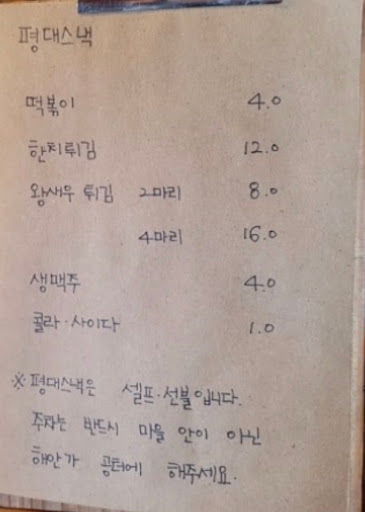 평대스낵
떡볶이 4.0
한치튀김 12.0
왕새우 튀김 2마리 8.0
4마리 16.0
생맥주 4.0
콜라·사이다 1.0
※평대스낵은 셀프·선불입니다.
주차는 반드시 마을 안이 아닌
해안가 공터에 해주세요.